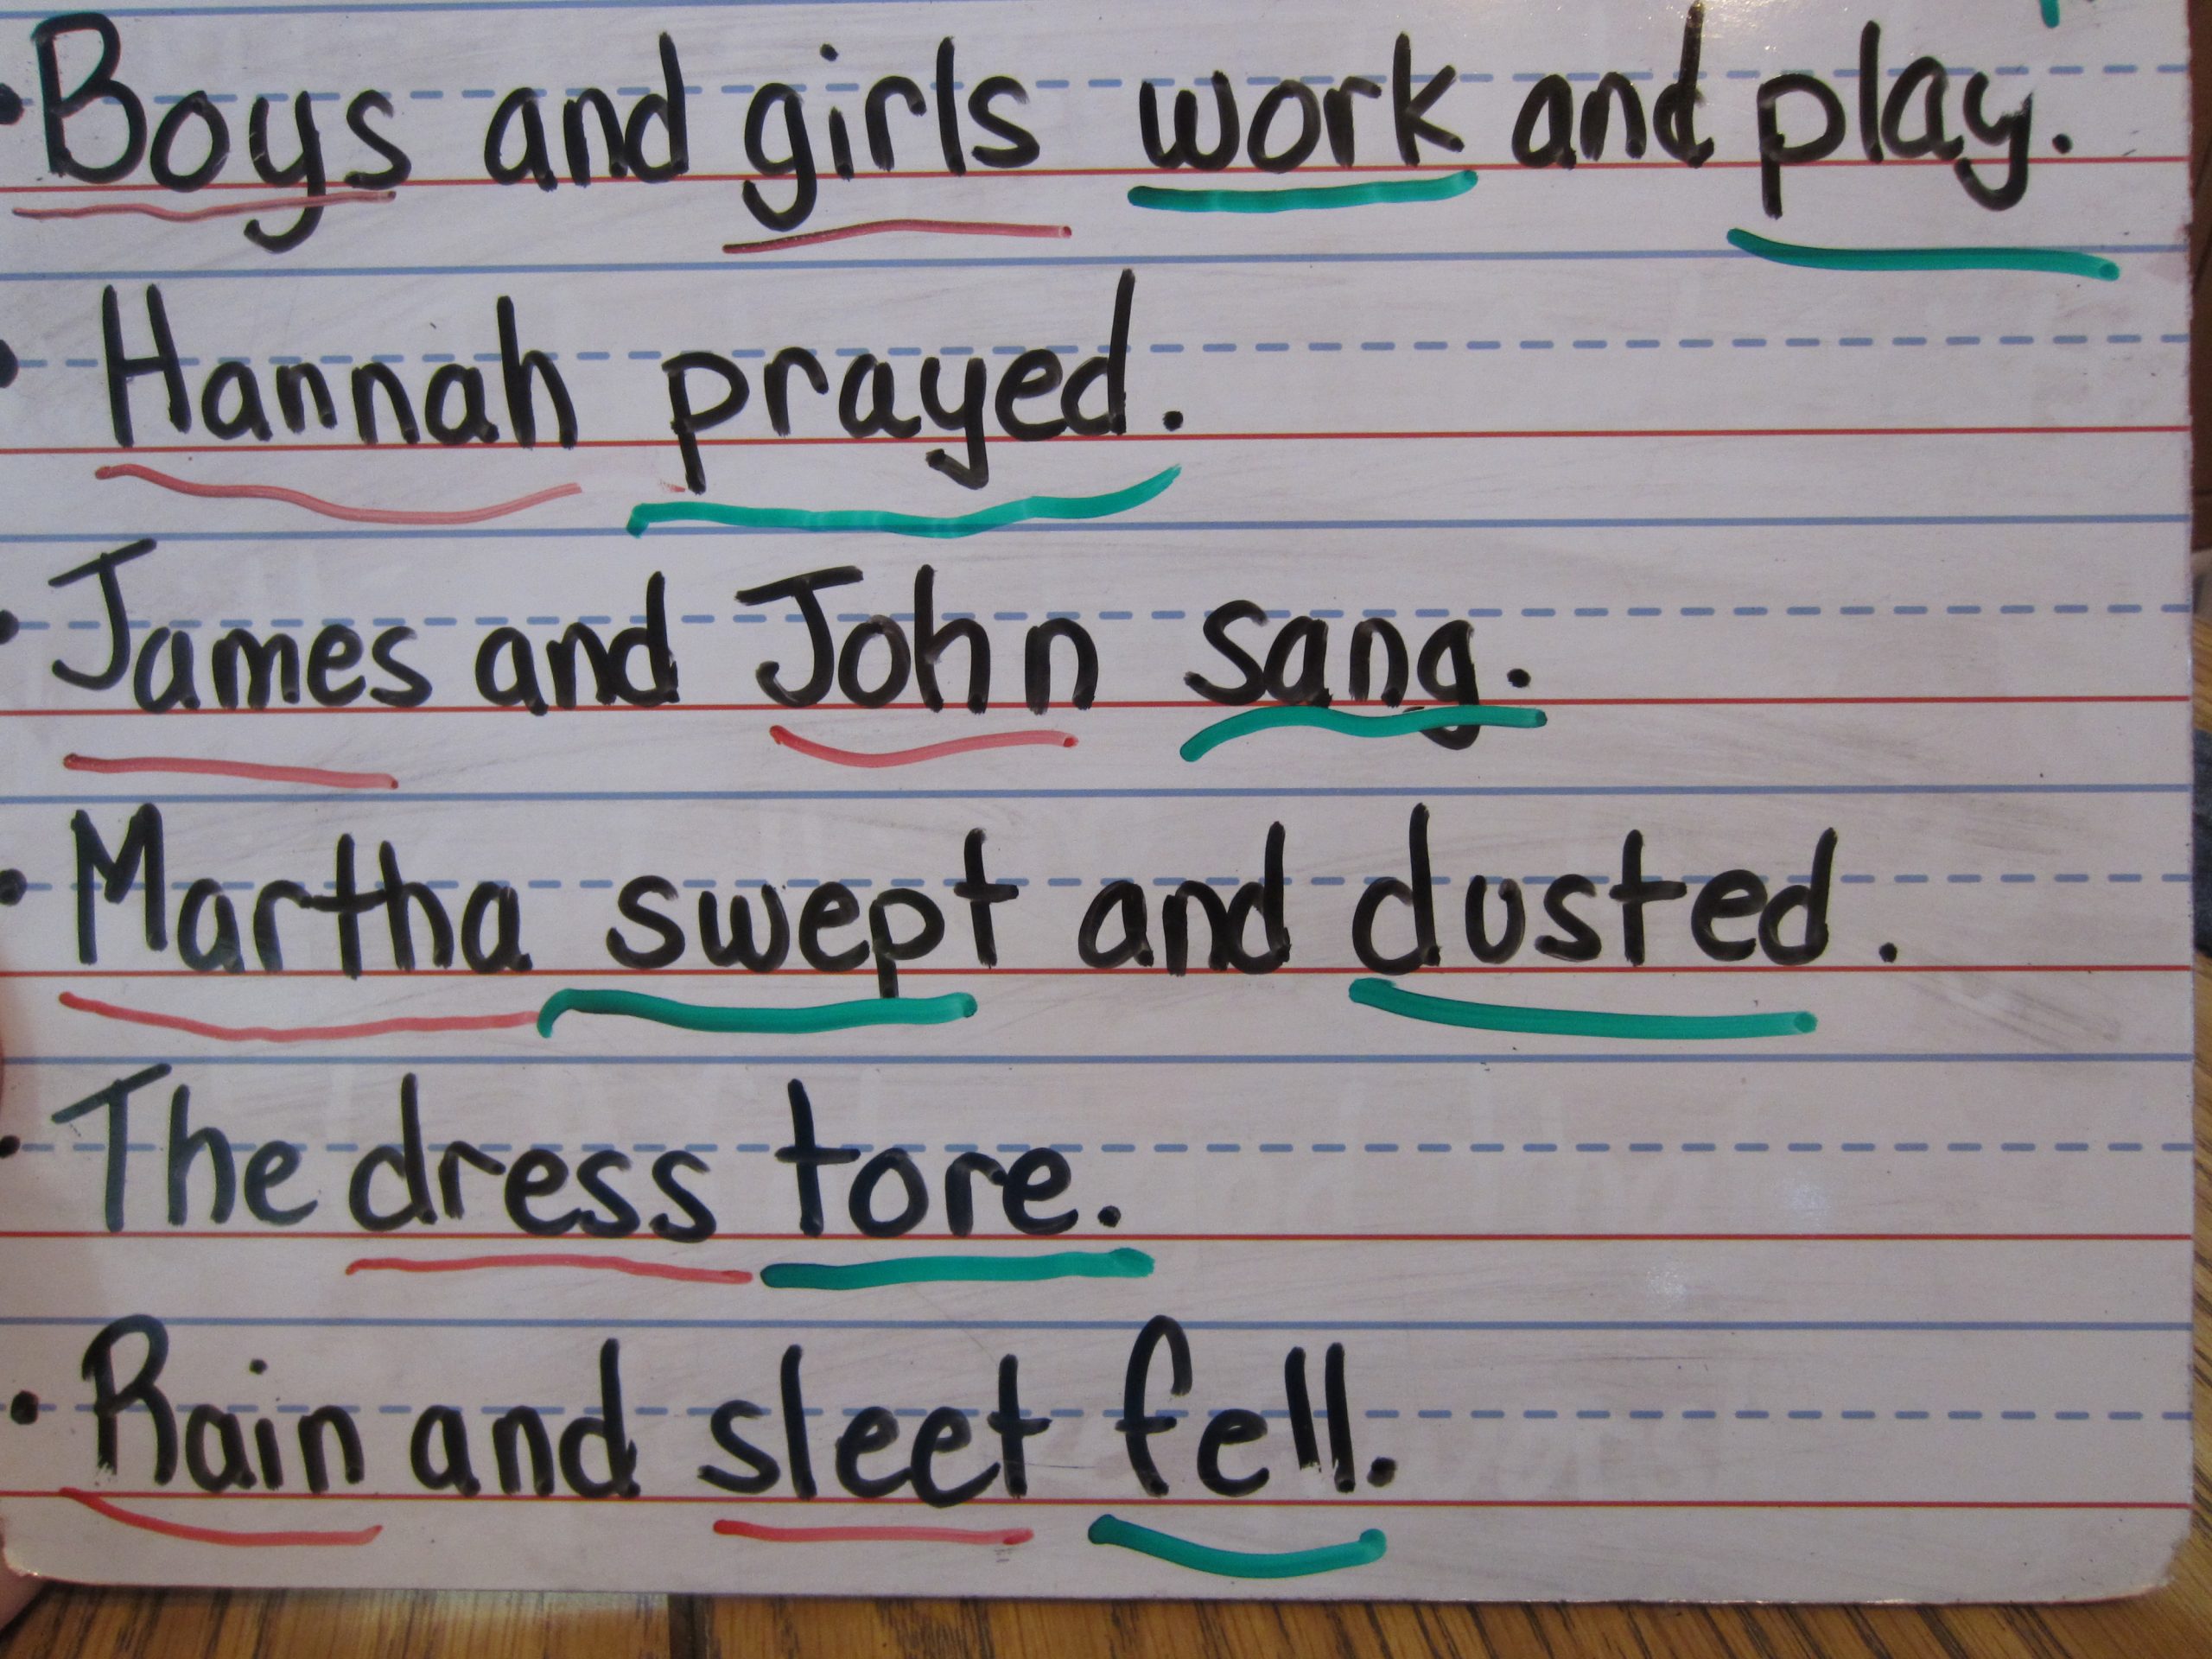 • Boys and girls work and play.
• Hannah prayed.
• James and John sang.
• Martha swept and dusted.
• The dress tore.
• Rain and sleet fell.